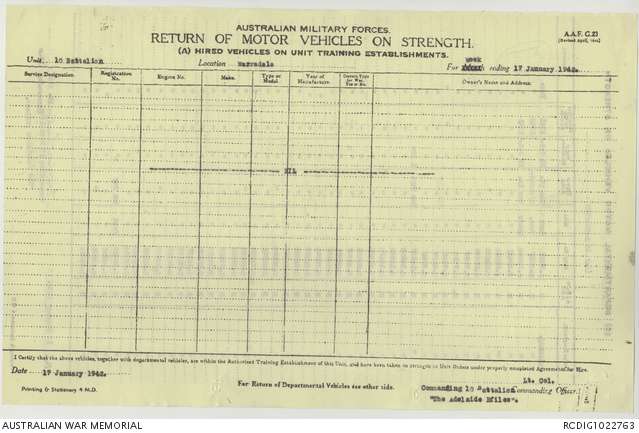 AUSTRALIAN MILITARY FORCES.
A.A.F. G.23
RETURN OF MOTOR VEHICLES ON STRENGTH.
(Revised April, 1941)
(A) HIRED VEHICLES ON UNIT TRAINING ESTABLISHMENTS.
Unit 10 Battalion Location Warradale For week ending 17 January 1942.
Service Designation. Registration No. Engine No. Make. Type or Model. Year of Manufacture. Owner's Name and Address.
NIL
I Certify that the above vehicles, together with departmental vehicles, are within the Authorized Training Establishment of this Unit, and have been taken on strength in Unit Orders under properly completed Agreements for Hire.
Date 17 January 1942.
Lt. Col.
For Return of Departmental Vehicles see other side.
Commanding 10 Battalion Commanding Officer.
"The Adelaide Rifles"
Printing & Stationery 4 M.D.
AUSTRALIAN WAR MEMORIAL RCDIG1022763